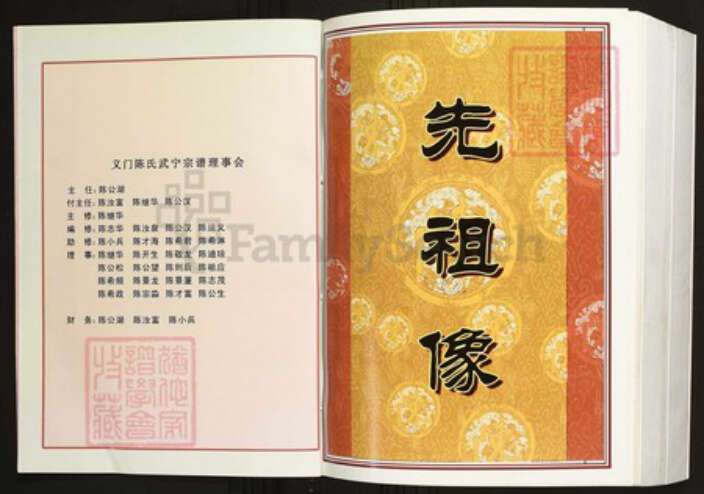 义门陈氏武宁宗谱理事会
主 任：陈公湖
付主任：陈汝富 陈继华 陈公汉
主 修：陈继华
编 修：陈志华 陈汝泉 陈公汉 陈运文
助 修：陈小兵 陈才海 陈希君 陈希淋
理 事：陈继华 陈开生 陈敬龙 陈迪琼
陈公松 陈公望 陈则后 陈能应
陈希频 陈景龙 陈景厦 陈志茂
陈希政 陈宗淼 陈才富 陈公生
财 务：陈公湖 陈汝富 陈小兵
先祖像
FamilySearch
谱学会
特藏